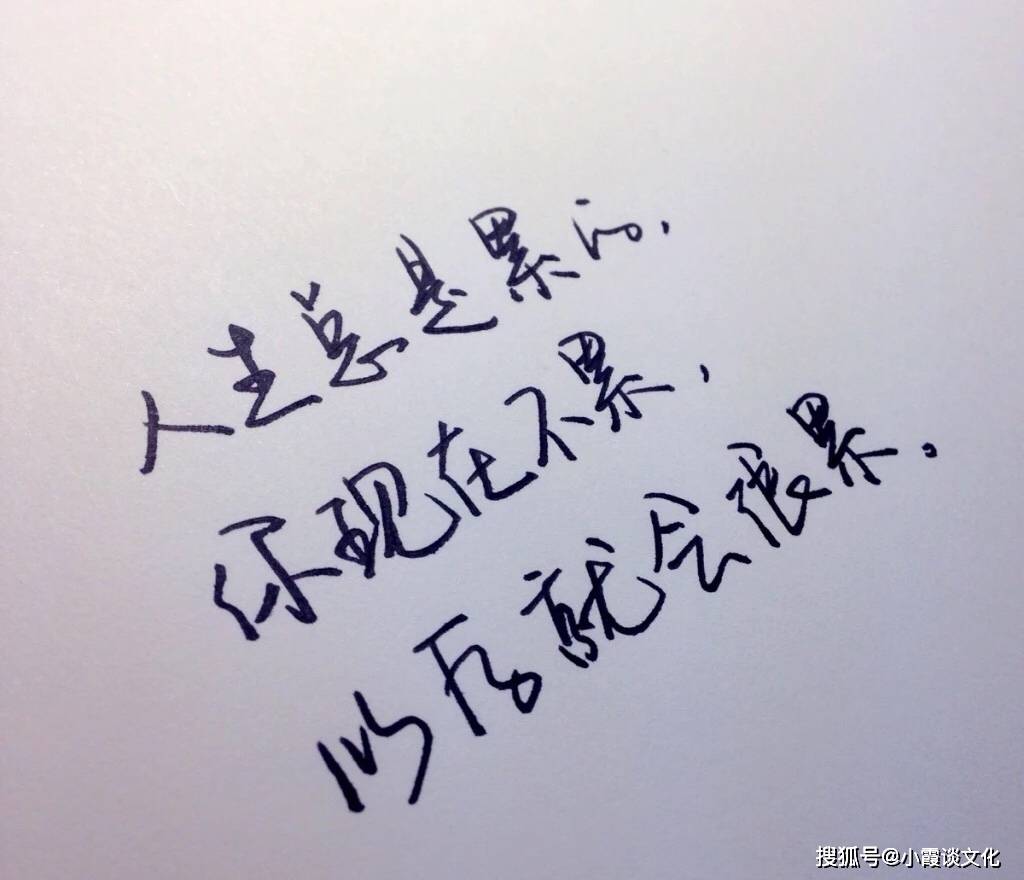 人生总是累的.
你现在不累.
以后就会很累.
搜狐号@小霞谈文化